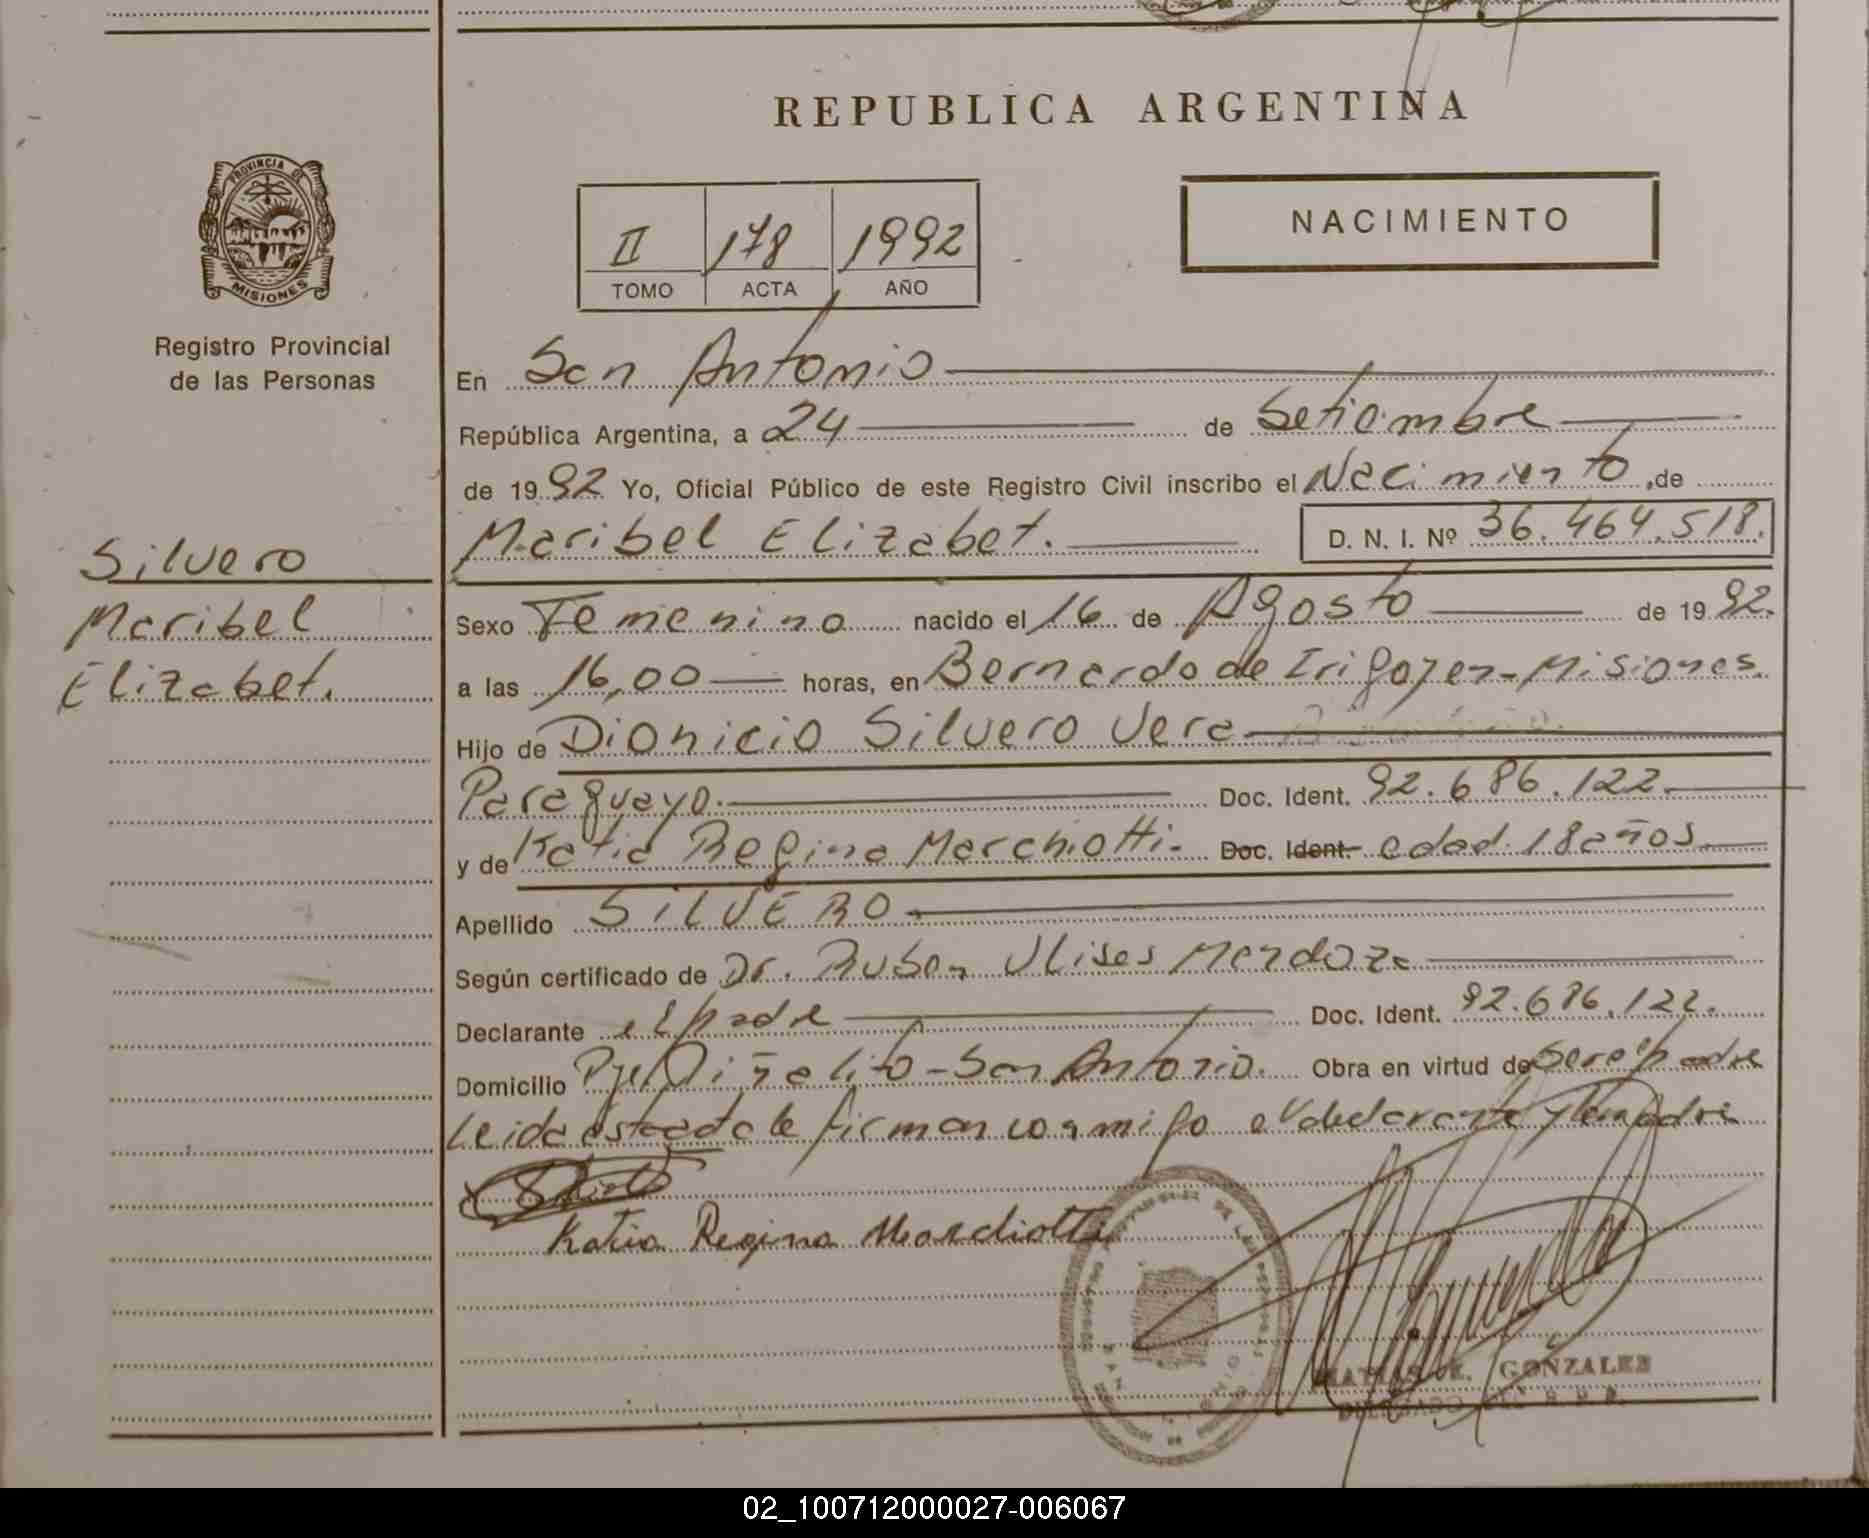 REPUBLICA ARGENTINA
PROVINCIA DE
MISIONES
Registro Provincial
de las Personas
II 178 1992
TOMO ACTA AÑO
NACIMIENTO
En San Antonio
República Argentina, a 24 de Setiembre
de 1992 Yo, Oficial Público de este Registro Civil inscribo el Nacimiento, de
Maribel Elizabet. D. N. I. Nº 36.464.518.
Silvero
Maribel
Elizabet.
Sexo Femenino nacido el 16 de Agosto de 1992.
a las 16,00 horas, en Bernardo de Irigoyen - Misiones.
Hijo de Dionicio Silvero Vera
Paraguayo. Doc. Ident. 92.686.122.
y de Katia Regina Marchiotti. Doc. Ident. edad 18 años.
Apellido SILVERO
Según certificado de Dr. Ruben Ulises Mendoza
Declarante el padre Doc. Ident. 92.686.122.
Domicilio Piñalito - San Antonio. Obra en virtud de ser el padre
Leida esta acta la firman conmigo el declarante y la madre
Katia Regina Marchiotti
MATIAS GONZALEZ
DELEGADO DEL R.P.P.
02_100712000027-006067